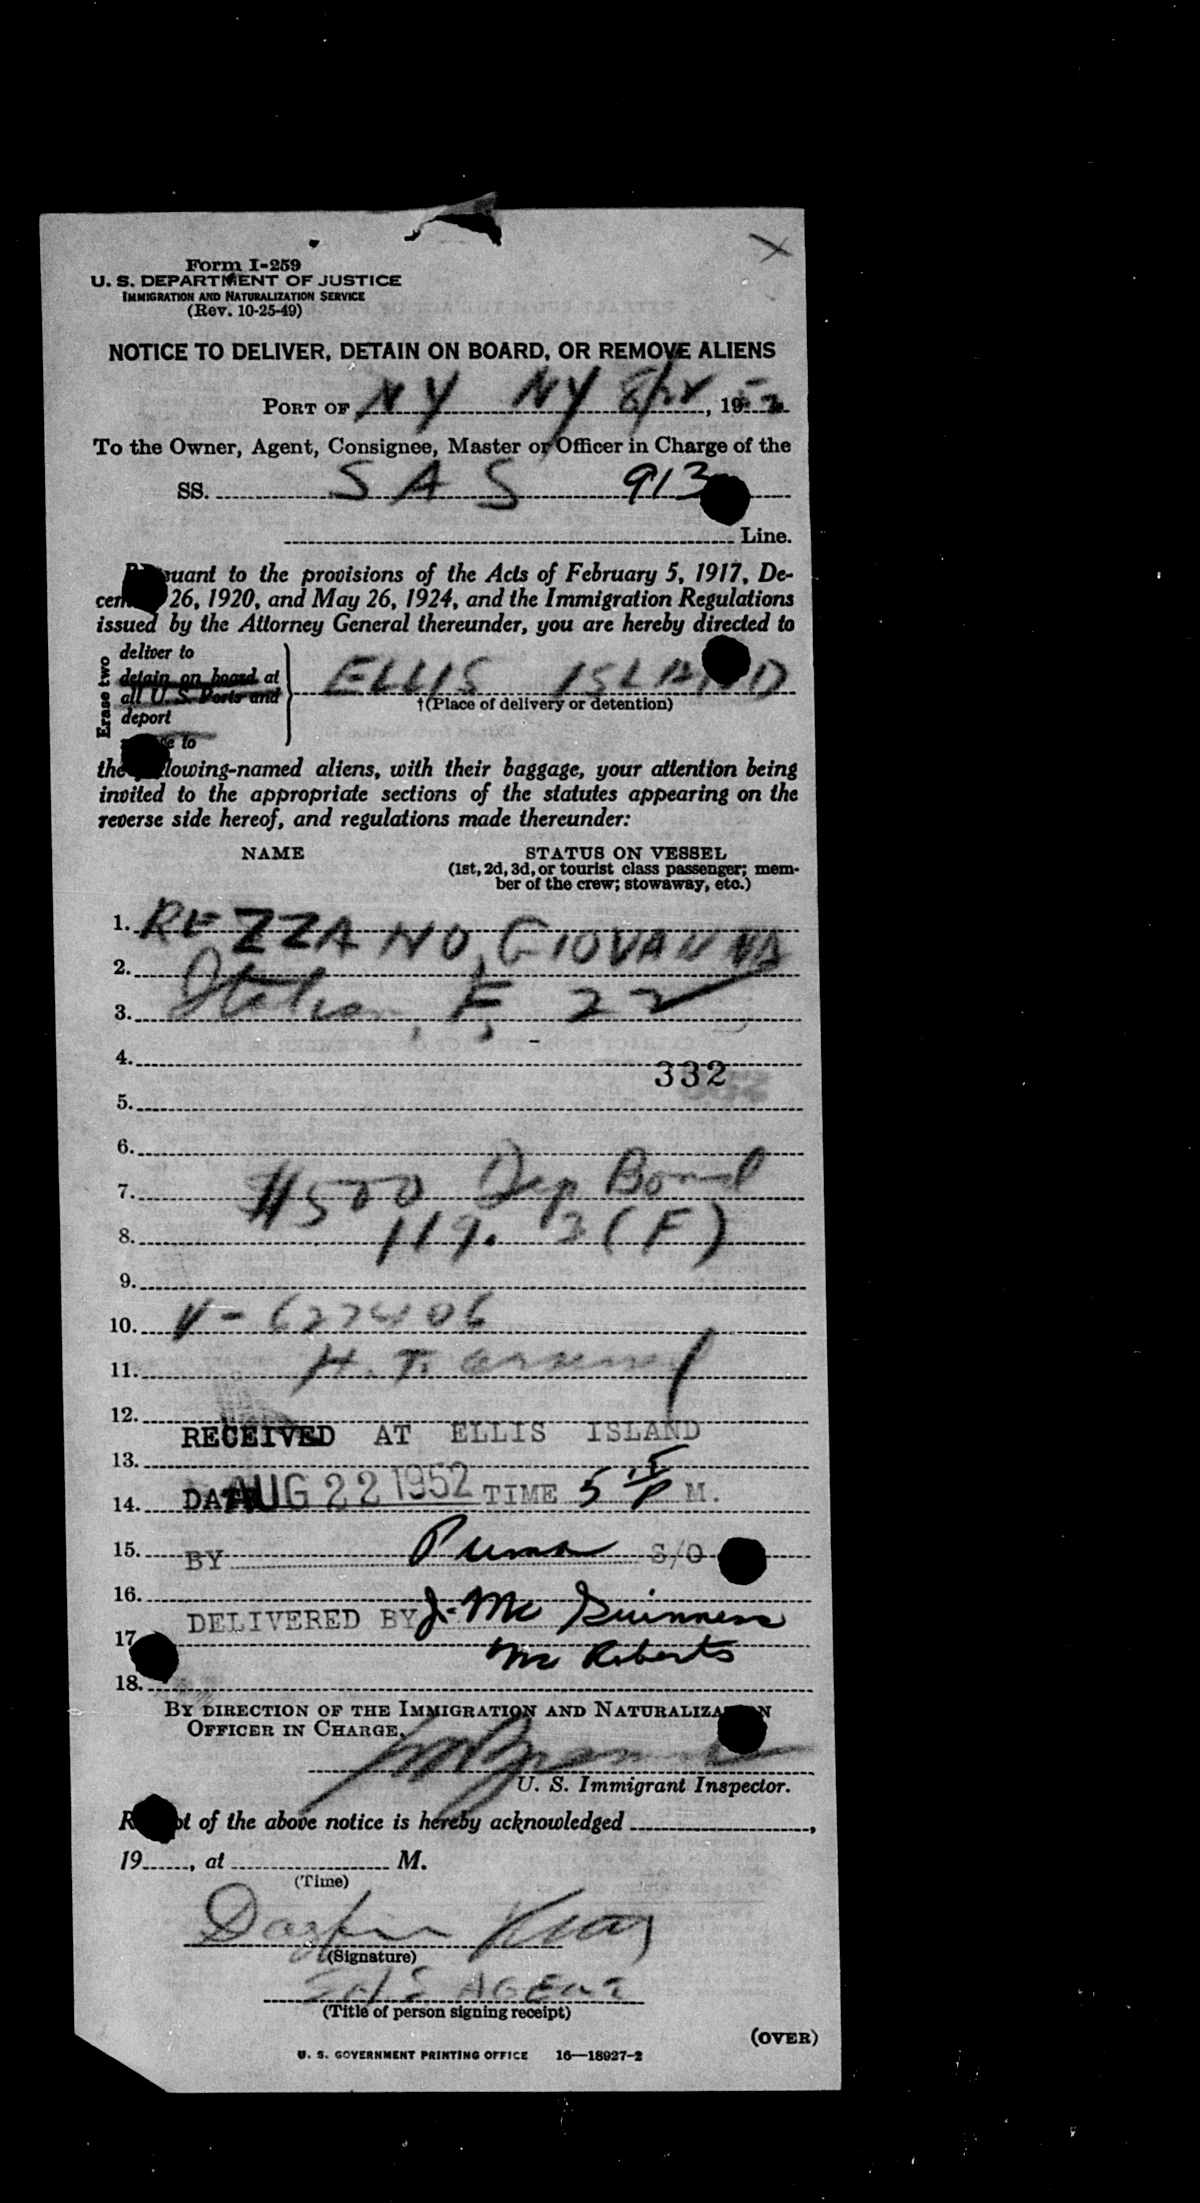 Form I-259
U. S. DEPARTMENT OF JUSTICE
IMMIGRATION AND NATURALIZATION SERVICE
(Rev. 10-25-49)
NOTICE TO DELIVER, DETAIN ON BOARD, OR REMOVE ALIENS
PORT OF NY NY 8/22, 1952
To the Owner, Agent, Consignee, Master or Officer in Charge of the
SS. SAS 913
Line.
suant to the provisions of the Acts of February 5, 1917, De-
cem 26, 1920, and May 26, 1924, and the Immigration Regulations
issued by the Attorney General thereunder, you are hereby directed to
Erase two
deliver to
detain on board at
all U. S. Ports and
deport
to
ELLIS ISLAND
†(Place of delivery or detention)
the lowing-named aliens, with their baggage, your attention being
invited to the appropriate sections of the statutes appearing on the
reverse side hereof, and regulations made thereunder:
NAME STATUS ON VESSEL
(1st, 2d, 3d, or tourist class passenger; mem-
ber of the crew; stowaway, etc.)
1. REZZANO, GIOVANNA
2.
3. Italian, F, 22
4.
332
5.
6.
7. $500 Dep Bond
8. 119. 3(F)
9.
10. V-627406
11. H. T.
12.
RECEIVED AT ELLIS ISLAND
13.
14. DATE AUG 22 1952 TIME 5 15 P M.
15. BY Puma S/O
16.
DELIVERED BY J. McGuinness
17. McRoberts
18.
BY DIRECTION OF THE IMMIGRATION AND NATURALIZATION
OFFICER IN CHARGE.
U. S. Immigrant Inspector.
R t of the above notice is hereby acknowledged ,
19 , at M.
(Time)
(Signature)
SAS AGENT
(Title of person signing receipt)
(OVER)
U. S. GOVERNMENT PRINTING OFFICE 16—18927-2